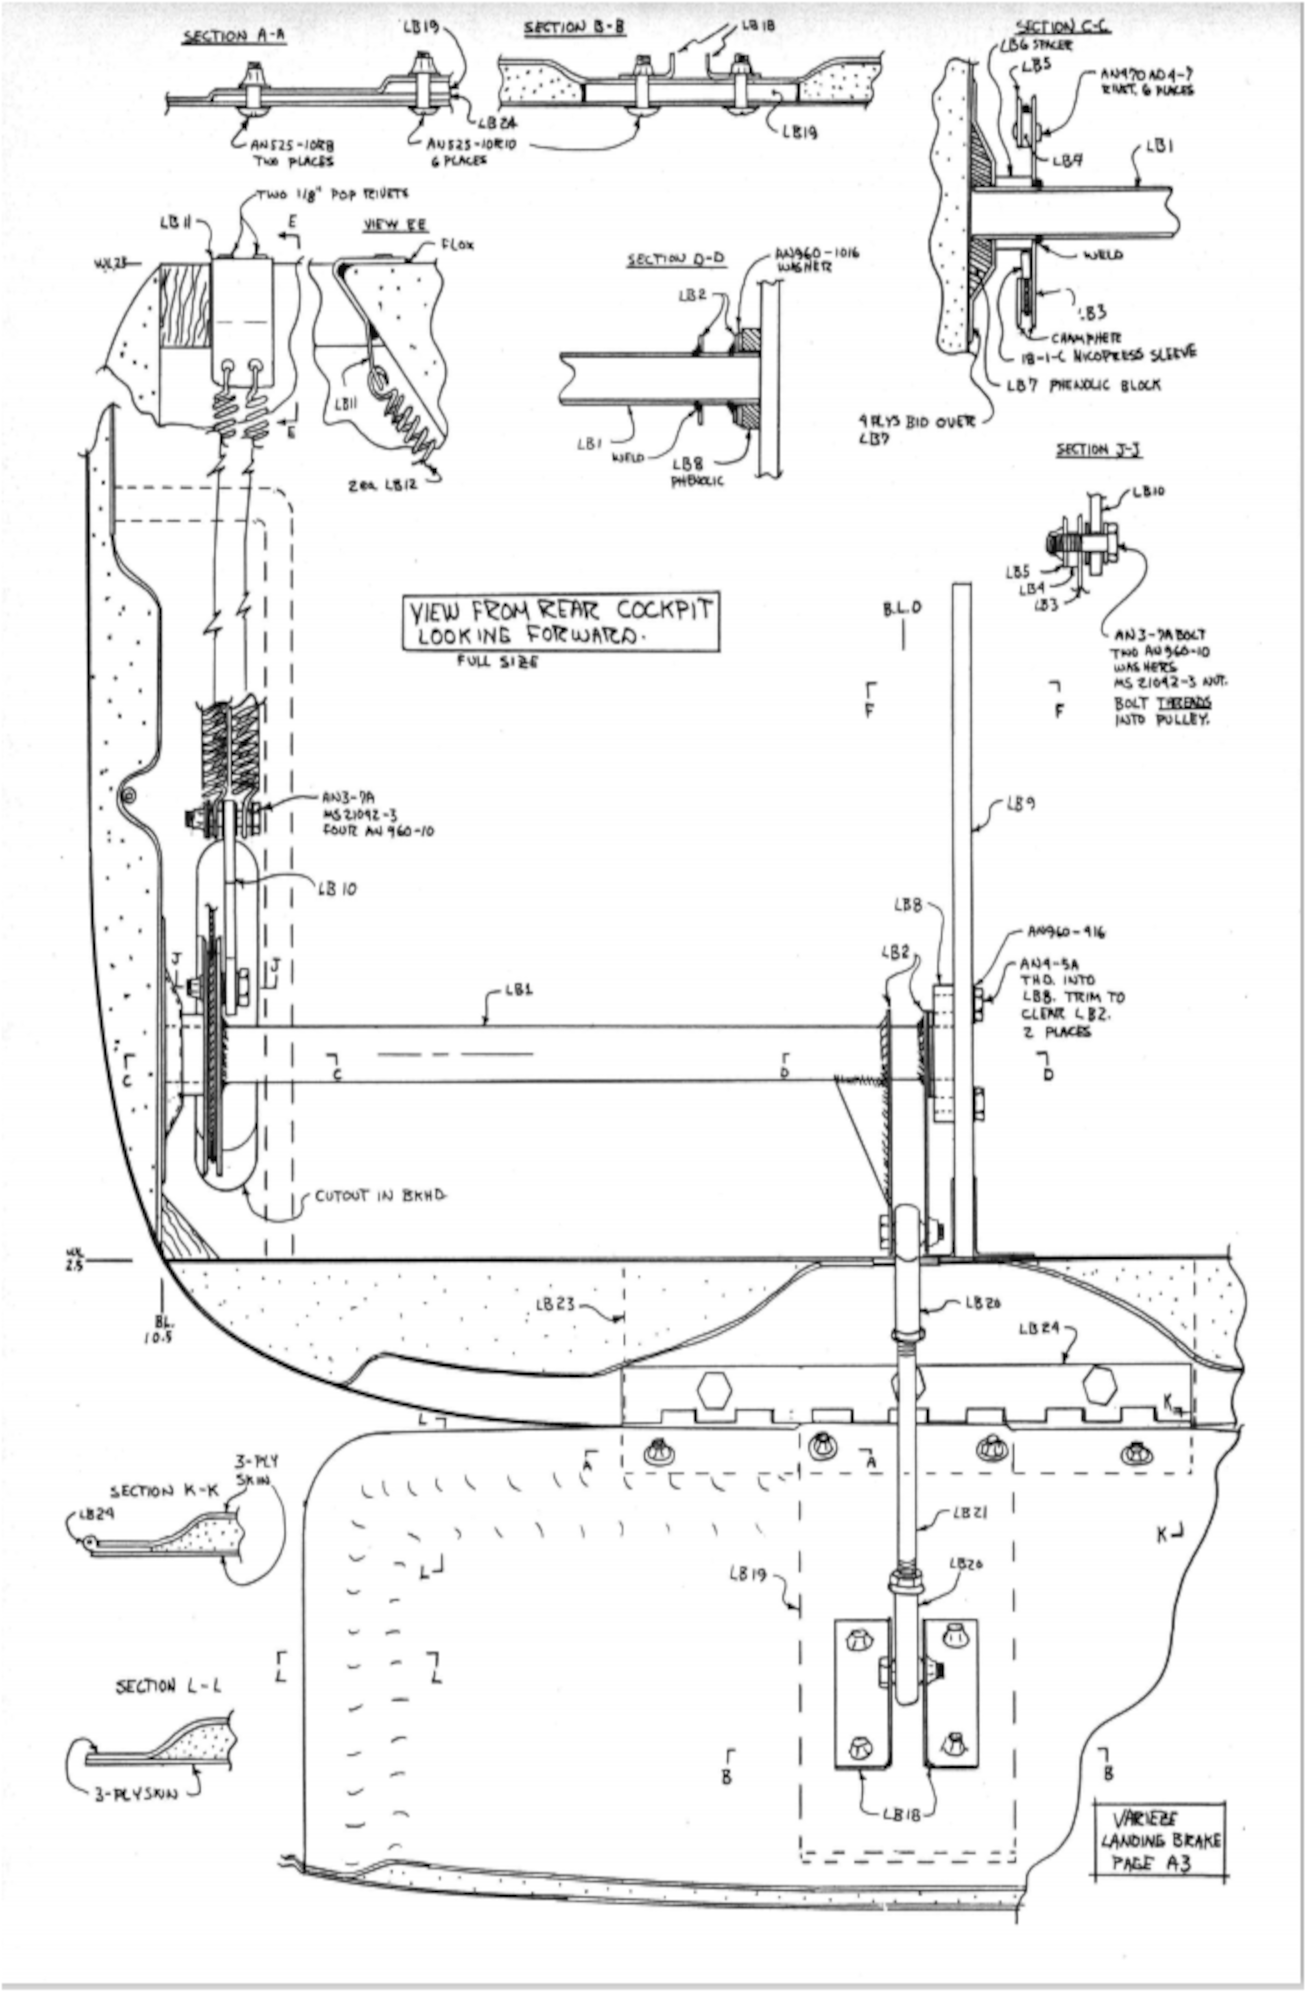 SECTION A-A
LB19
LB24
AN525-10R8
TWO PLACES
AN525-10R10
6 PLACES
SECTION B-B
LB18
LB19
SECTION C-C
LB6 SPACER
LB5
AN470 AD 4-7
RIVT. 6 PLACES
LB4
LB1
WELD
LB3
CHAMPHER
18-1-C NICOPRESS SLEEVE
LB7 PHENOLIC BLOCK
4 PLYS BID OVER
LB7
TWO 1/8" POP RIVETS
LB11
E
E
W.L. 23
VIEW EE
FLOX
LB11
2 ea. LB12
SECTION D-D
AN960-1016
WASHER
LB2
LB1
WELD
LB8
PHENOLIC
SECTION J-J
LB10
LB5
LB4
LB3
AN3-7A BOLT
TWO AN960-10
WASHERS
MS 21042-3 NUT.
BOLT THREADS
INTO PULLEY.
VIEW FROM REAR COCKPIT
LOOKING FORWARD.
FULL SIZE
B.L.O
F
F
LB9
AN3-7A
MS21042-3
FOUR AN 960-10
LB10
LB8
LB2
AN960-416
AN4-5A
THD. INTO
LB8. TRIM TO
CLEAR LB2.
2 PLACES
J
J
LB1
C
C
D
D
CUTOUT IN BKHD
W.L.
2.5
B.L.
10.5
LB23
LB20
LB24
L
K
A
A
SECTION K-K
3-PLY
SKIN
LB24
LB21
K
L
LB19
LB20
L
L
SECTION L-L
3-PLY SKIN
B
B
LB18
VARIEZE
LANDING BRAKE
PAGE A3